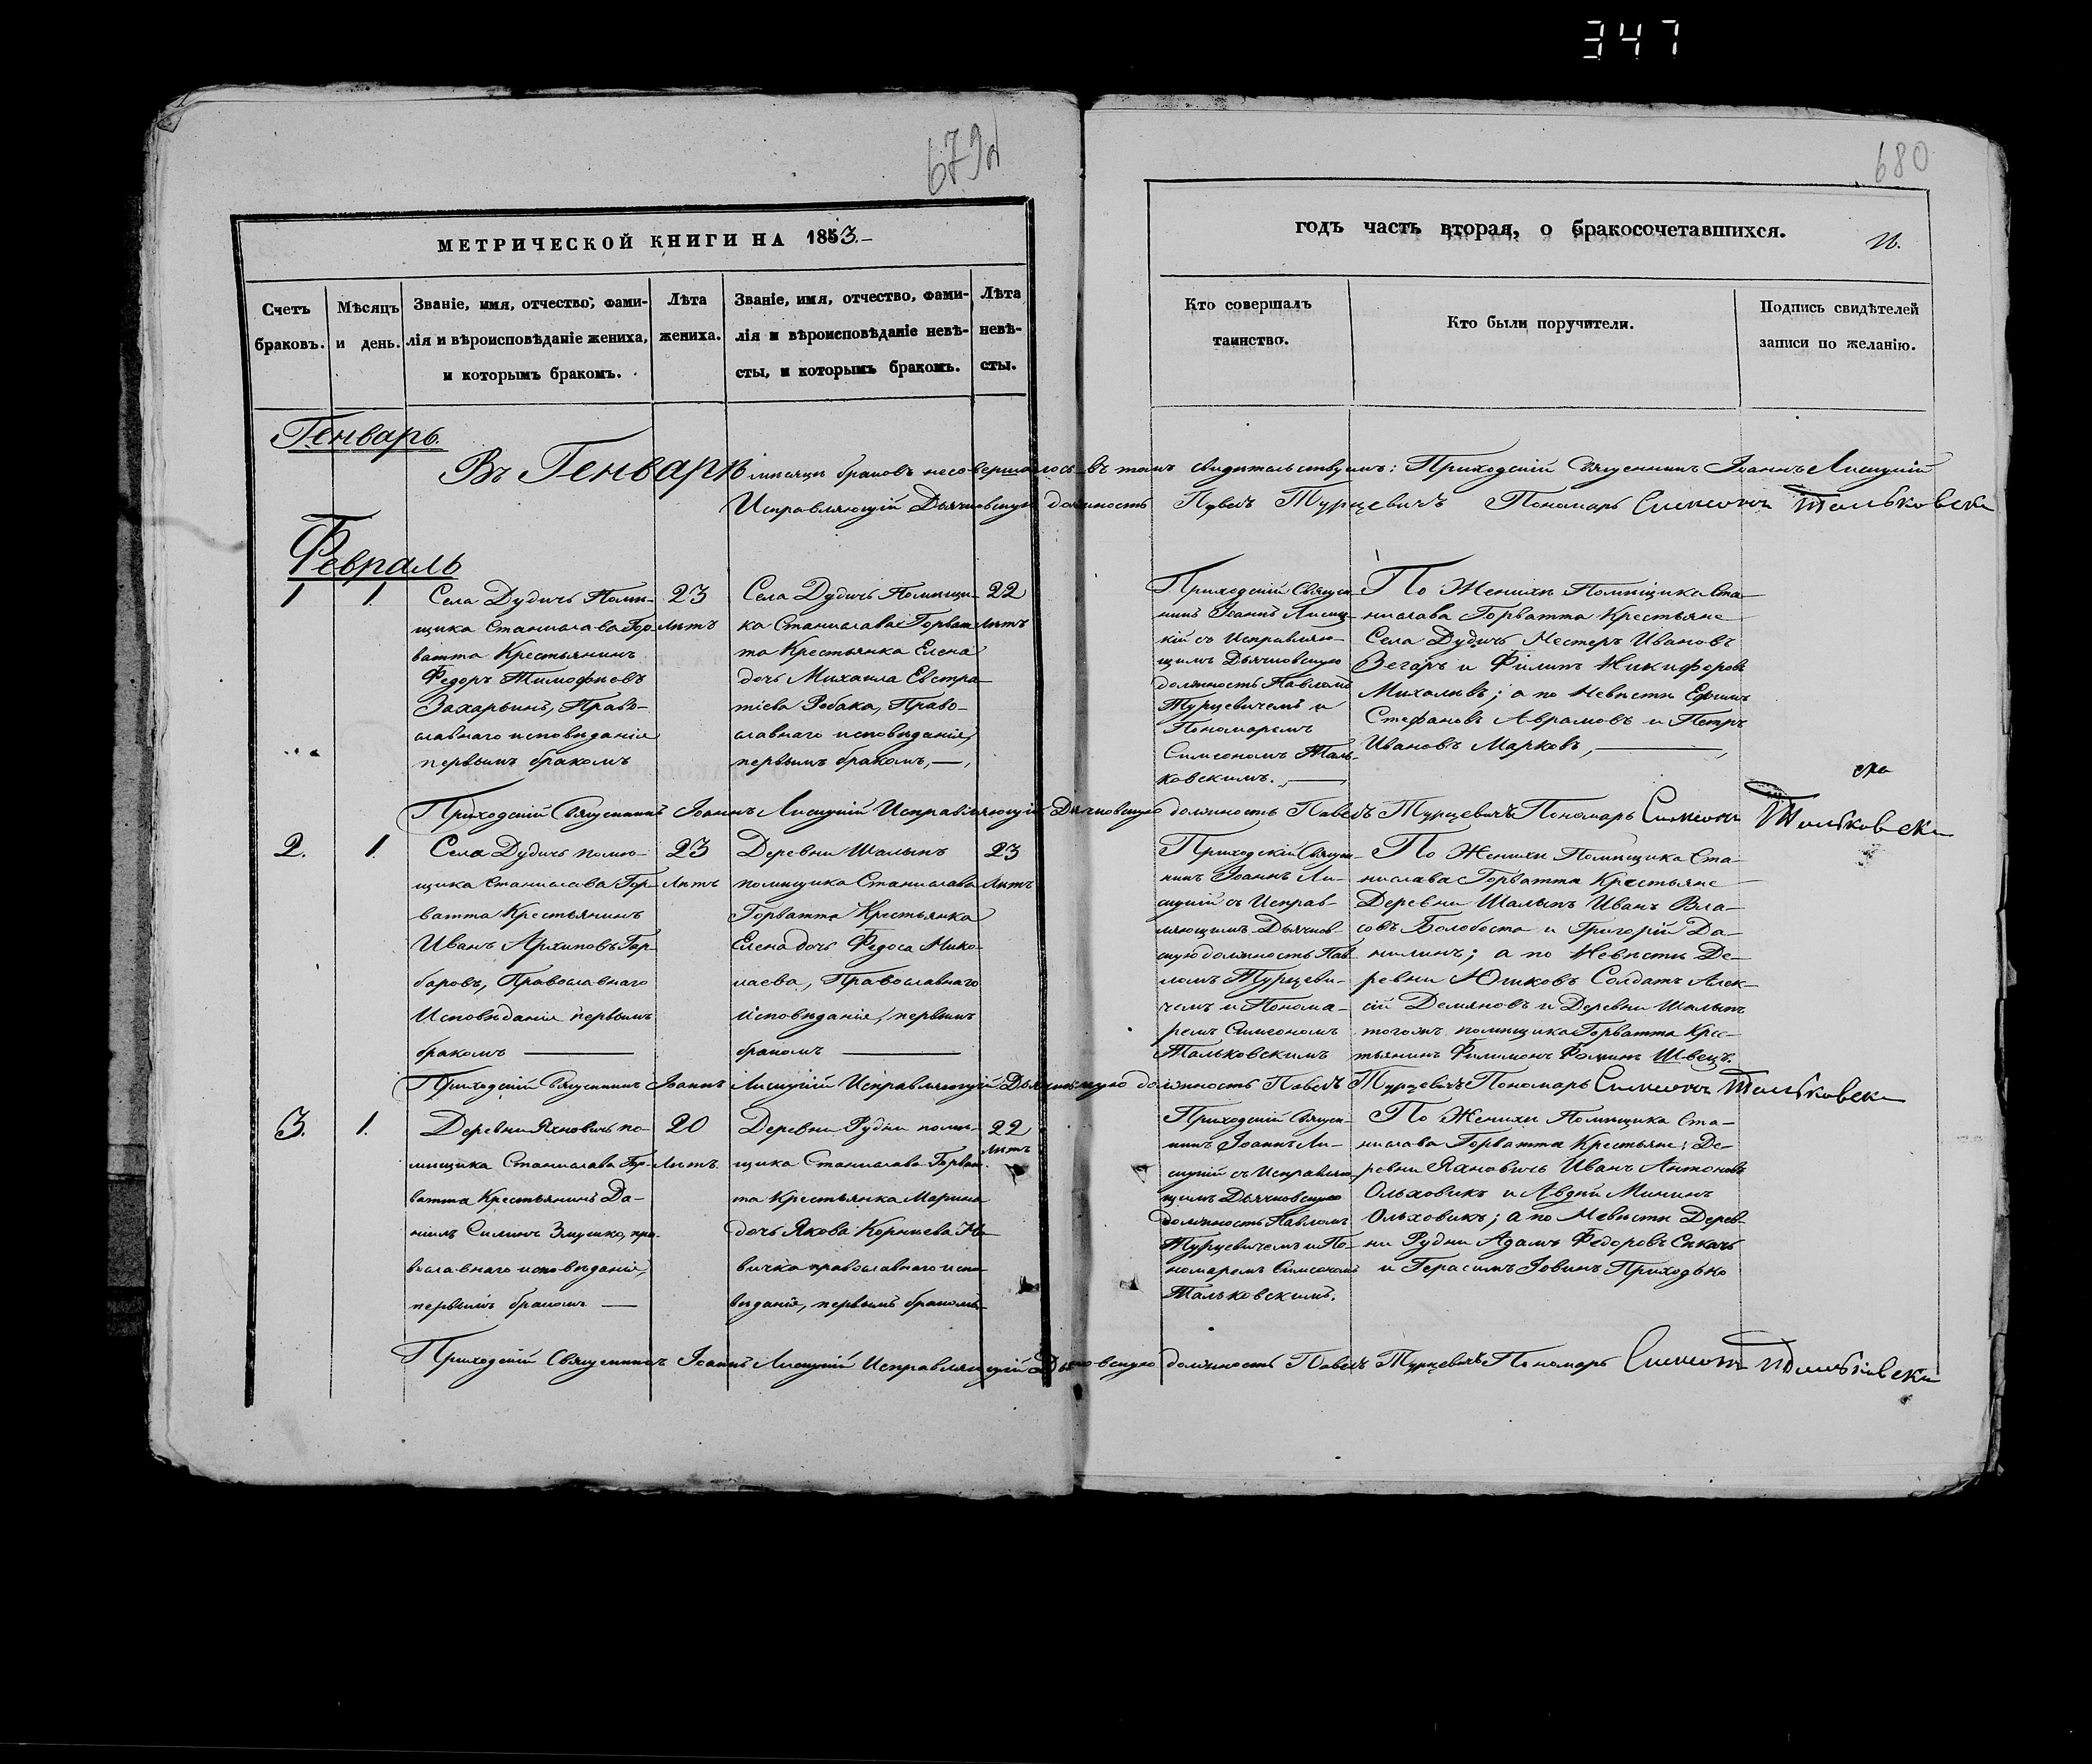 347
679
680
МЕТРИЧЕСКОЙ КНИГИ НА 1853.
годъ часть вторая, о бракосочетавшихся.
Счетъ браковъ.
Мѣсяцъ и день.
Званіе, имя, отчество, фами-
лія и вѣроисповѣданіе жениха,
и которымъ бракомъ.
Лѣта
жениха.
Званіе, имя, отчество, фами-
лія и вѣроисповѣданіе невѣ-
сты, и которымъ бракомъ.
Лѣта
невѣ-
сты.
Кто совершалъ
таинство.
Кто были поручители.
Подпись свидѣтелей
записи по желанію.
Генварь.
Въ Генварѣ мѣсяцѣ браковъ несовершалось въ томъ свидѣтельствуемъ: Приходскій Священникъ Іоаннъ Лисицкій
Исправляющій Дьячковскую должность Павелъ Турцевичъ Пономарь Симеонъ Тальковски
Февраль
1
1.
Села Дудичъ Помѣ-
щика Станислава Гор-
ватта Крестьянинъ
Федоръ Тимофѣевъ
Захарьинъ, Право-
славнаго исповѣданія
первымъ бракомъ
23
Лѣтъ
Села Дудичъ Помѣщи-
ка Станислава Горват-
та Крестьянка Елена
дочь Михаила Евстра-
тіева Робака, Право-
славнаго исповѣданія,
первымъ бракомъ,
22
Лѣтъ
Приходскій Священ-
никъ Іоаннъ Лисиц-
кій съ Исправляю-
щимъ Дьячковскую
должность Павломъ
Турцевичемъ и
Пономаремъ
Симеономъ Таль-
ковскимъ.
По Женихѣ Помѣщика Ста-
нислава Горватта Крестьяне
Села Дудичъ Нестеръ Ивановъ
Зегаръ и Филипъ Никифоровъ
; а по Невѣсти Ефимъ
Стефановъ Аврамовъ и Петръ
Ивановъ Марковъ,
Приходскій Священникъ Іоаннъ Лисицкій Исправляющій Дьячковскую должность Павелъ Турцевичъ Пономарь Симеонъ Тальковски
2.
1.
Села Дудичъ помѣ-
щика Станислава Гор-
ватта Крестьянинъ
Иванъ Архиповъ Гор-
баровъ, Православнаго
Исповѣданія первымъ
бракомъ
23
Лѣтъ
Деревни Шалыпъ
помѣщика Станислава
Горватта Крестьянка
Елена дочь Федоса Нико-
лаева, Православнаго
Исповѣданія, первымъ
бракомъ
23
Лѣтъ
Приходскій Священ-
никъ Іоаннъ Ли-
сицкій съ Исправ-
ляющимъ Дьячков-
скую должность Пав-
ломъ Турцеви-
чемъ и Понома-
ремъ Симеономъ
Тальковскимъ
По Женихѣ Помѣщика Ста-
нислава Горватта Крестьяне
Деревни Шалыпъ Иванъ Вла-
совъ Болобоста и Григорій Да-
нилинъ; а по Невѣсти Де-
ревни Юшковъ Солдатъ Алек-
сій Демяновъ и Деревни Шалыпъ
тогожъ помѣщика Горватта Крес-
тьянинъ Филимонъ Фоминъ Швецъ.
Приходскій Священникъ Іоаннъ Лисицкій Исправляющій Дьячковскую должность Павелъ Турцевичъ Пономарь Симеонъ Тальковски
3.
1.
Деревни Яхновичъ по-
мѣщика Станислава Гор-
ватта Крестьянинъ Да-
ніилъ Силинъ Змушко, пра-
вославнаго исповѣданія,
первымъ бракомъ
20
Лѣтъ.
Деревни Рудни помѣ-
щика Станислава Горват-
та Крестьянка Марина
дочь Якова Корнѣева Но-
вичка православнаго испо-
вѣданія, первымъ бракомъ
22
Лѣтъ
Приходскій Священ-
никъ Іоаннъ Ли-
сицкій съ Исправляю-
щимъ Дьячковскую
должность Павломъ
Турцевичемъ и По-
номаремъ Симеономъ
Тальковскимъ.
По Женихѣ Помѣщика Ста-
нислава Горватта Крестьяне: Де-
ревни Яхновичъ Иванъ Антоновъ
Ольховикъ и Авдѣй Мининъ
Ольховикъ; а по Невѣсти Дерев-
ни Рудни Адамъ Федоровъ Скачъ
и Герасимъ Іовинъ Приходько
Приходскій Священникъ Іоаннъ Лисицкій Исправляющій Дьячковскую должность Павелъ Турцевичъ Пономарь Симеонъ Тальковски